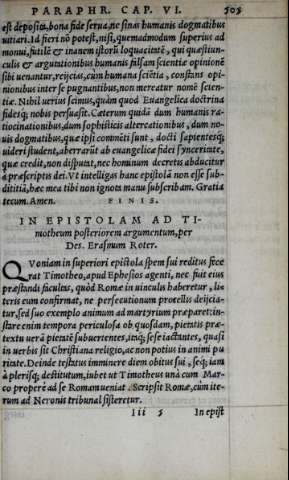 PARAPHR. CAP. VI. 505
est depositū, bona fide serua, ne sinas humanis dogmatibus
uitiari. Id fieri nō potest, nisi, quemadmodum superius ad
monui, futilē & inanem istorū loquacitatē, qui quæstiun-
culis & argutationibus humanis falsam scientiæ opinionē
sibi uenantur, reijcias, cùm humana sciētia, constans opi-
nionibus inter se pugnantibus, non mereatur nomē scien-
tiæ. Nihil uerius scimus, quàm quod Euangelica doctrina
fidesq́; nobis persuasit. Cæterum quidā dum humanis ra-
tiocinationibus, dum sophisticis altercationibus, dum no-
uis dogmatibus, quæ ipsi commēti sunt, docti sapientesq́;
uideri student, aberrarūt ab euangelicæ fidei synceritate,
quæ credit, non disputat, nec hominum decretis abducitur
à præscriptis dei. Vt intelligas hanc epistolā non esse sub-
dititiā, hæc mea tibi non ignota manu subscribam. Gratia
tecum. Amen. FINIS.
IN EPISTOLAM AD TI-
motheum posteriorem argumentum, per
Des. Erasmum Roter.
QVoniam in superiori epistola spem sui reditus fece
rat Timotheo, apud Ephesios agenti, nec fuit eius
præstandi facultas, quòd Romæ in uinculis haberetur, li-
teris eum confirmat, ne persecutionum procellis deijcia-
tur, sed suo exemplo animum ad martyrium præparet: in-
stare enim tempora periculosa ob quosdam, pietatis præ-
textu ueræ pietatē subuertentes, itaq́; se se iactantes, quasi
in uerbis sit Christiana religio, ac non potius in animi pu
ritate. Deinde testatus imminere diem obitus sui, seq́; iam
à plerisq́; destitutum, iubet ut Timotheus unà cum Mar-
co properè ad se Romam ueniat. Scripsit Romæ, cùm ite-
rum ad Neronis tribunal sisteretur.
Iii 5 In epist